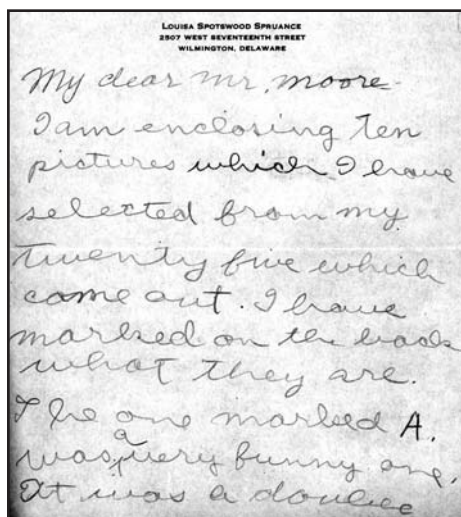 LOUISA SPOTSWOOD SPRUANCE
2507 WEST SEVENTEENTH STREET
WILMINGTON, DELAWARE
My dear Mr. Moore-
I am enclosing ten
pictures which I have
selected from my
twenty five which
came out. I have
marked on the back
what they are.
The one marked A.
was a very funny one.
It was a double